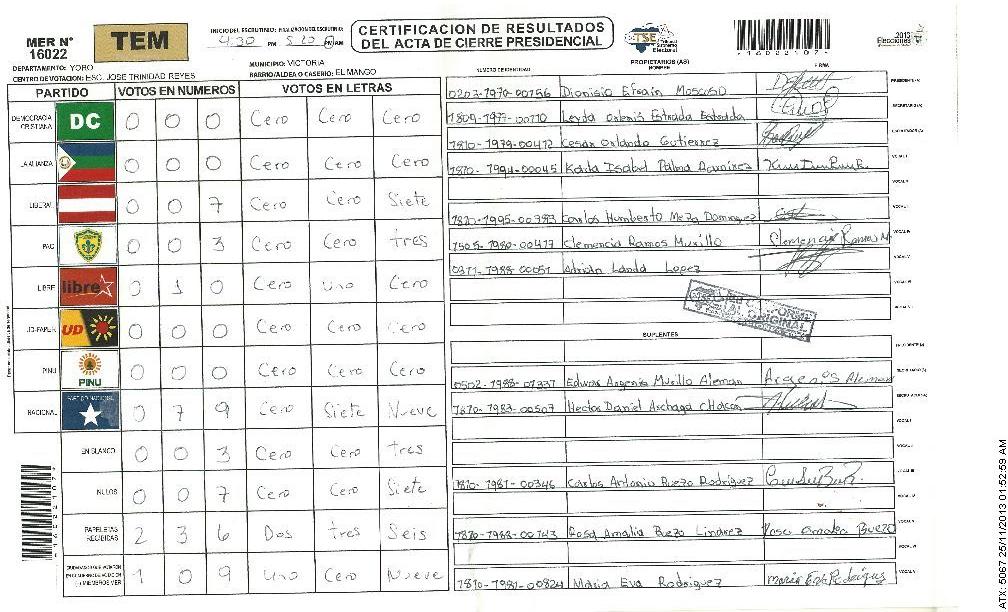 MER N°
16022
TEM
INICIO DEL ESCRUTINIO:
4:30 PM
CERTIFICACION DE RESULTADOS
DEL ACTA DE CIERRE PRESIDENCIAL
TSE
Tribunal
Supremo
Electoral
*16022107*
2013
Elecciones
DEPARTAMENTO: YORO
MUNICIPIO: VICTORIA
CENTRO DE VOTACION: ESC. JOSE TRINIDAD REYES
BARRIO/ALDEA O CASERIO: EL MANGO
PARTIDO VOTOS EN NUMEROS VOTOS EN LETRAS
DEMOCRACIA CRISTIANA DC 0 0 0 Cero Cero Cero
LA ALIANZA 0 0 0 Cero Cero Cero
LIBERAL 0 0 7 Cero Cero Siete
PAC 0 0 3 Cero Cero tres
LIBRE libre 0 1 0 Cero Uno Cero
UD-FAPER UD 0 0 0 Cero Cero Cero
PINU PINU 0 0 0 Cero Cero Cero
NACIONAL PARTIDO NACIONAL 0 7 9 Cero Siete Nueve
EN BLANCO 0 0 3 Cero Cero tres
NULOS 0 0 7 Cero Cero Siete
PAPELETAS RECIBIDAS 2 3 6 Dos tres Seis
1 0 9 Uno Cero Nueve
PROPIETARIOS (AS)
NUMERO DE IDENTIDAD NOMBRE FIRMA
Dionisio Efrain
1809-1977-00710 Leyda
1810-1979-00472 Cesar Orlando Gutierrez
1810-1994-00045 Karla Isabel Palma Ramirez
Carlos Humberto Meza Dominguez
Clemencia Ramos Murillo Clemencia Ramos M
Adrian Landa Lopez
ORIGINAL
SUPLENTES
0502-1988-01337 Argenis Murillo Aleman Argenis Aleman
1810-1983-00507 Hector Daniel Archaga Chacon
1810-1981-00346 Carlos Antonio Buezo Rodriguez
Rosa Amalia Buezo Rosa Amalia Buezo
1810-1981-00824 Maria Eva Rodriguez Maria Eva Rodriguez
*16022107*
ATX: 5067 25/11/2013 01:52:59 AM